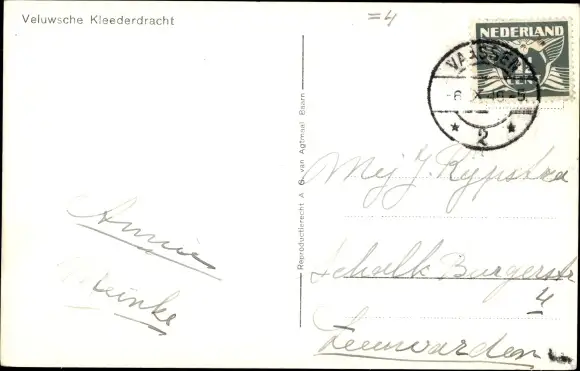 Veluwsche Kleederdracht
=4
NEDERLAND
VAASSEN
-6 X 46-5
2
Reproductierecht A. B. van Agtmaal Baarn
Mej J. Rypstra
Schalk Burgerstr
4
Leeuwarden
Annie
Meinke